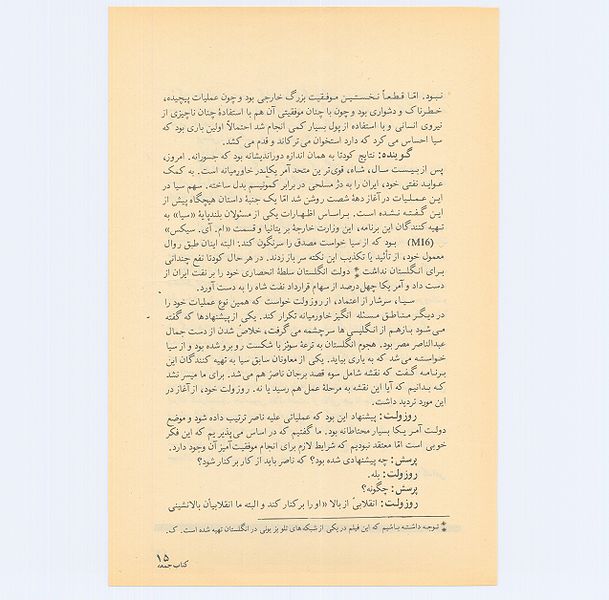 نبود. امّا قطعاً نخستین موفقیت بزرگ خارجی بود و چون عملیات پیچیده،
خطرناک و دشواری بود و چون با چنان موفقیتی آن هم با استفادهٔ چنان ناچیزی از
نیروی انسانی و با استفاده از پول بسیار کمی انجام شد احتمالاً اولین باری بود که
سیا احساس می کرد که دارد استخوان می‌ترکاند و قدم می‌کشد.
گوینده: نتایج کودتا به همان اندازه دوراندیشانه بود که جسورانه. امروز،
پس از بیست سال، شاه، قوی‌ترین متحد آمریکادر خاورمیانه است. به کمک
عواید نفتی خود، ایران را به دژ مسلحی در برابر کمونیسم بدل ساخته. سهم سیا در
این عملیات در آغاز دههٔ شصت روشن شد امّا یک جنبهٔ داستان هیچگاه پیش از
این گفته نشده است. براساس اظهارات یکی از مسئولان بلندپایهٔ «سیا» به
تهیه کنندگان این برنامه، این وزارت خارجهٔ بریتانیا و قسمت «ام. آی. سیکس»
(MI6) بود که از سیا خواست مصدق را سرنگون کند: البته اینان طبق روال
معمول خود، از تأیید یا تکذیب این نکته سر باز زدند. در هر حال کودتا نفع چندانی
برای انگلستان نداشت* دولت انگلستان سلطهٔ انحصاری خود را بر نفت ایران از
دست داد و آمریکا چهل درصد از سهام قرارداد نفت شاه را به دست آورد.
سیا، سرشار از اعتماد، از روزولت خواست که همین نوع عملیات خود را
در دیگر مناطق مسئله انگیز خاورمیانه تکرار کند. یکی از پیشنهادها که گفته
می‌شود بازهم از انگلیسی ها سرچشمه می‌گرفت، خلاص شدن از دست جمال
عبدالناصر مصر بود. هجوم انگلستان به ترعهٔ سوئز با شکست روبرو شده بود و از سیا
خواسته می‌شد که به یاری بیاید. یکی از معاونان سابق سیا به تهیه کنندگان این
برنامه گفت که نقشه شامل سوء قصد بر جان ناصر هم می‌شد. برای ما میسر نشد
که بدانیم که آیا این نقشه به مرحلهٔ عمل هم رسید یا نه. روزولت خود، از آغاز در
این مورد تردید داشت.
روزولت: پیشنهاد این بود که عملیاتی علیه ناصر ترتیب داده شود و موضع
دولت آمریکا بسیار محتاطانه بود. ما گفتیم که در اساس می‌پذیریم که این فکر
خوبی است امّا معتقد نبودیم که شرایط لازم برای انجام موفقیت‌آمیز آن وجود دارد.
پرسش: چه پیشنهادی شده بود؟ که ناصر باید از کار برکنار شود؟
روزولت: بله.
پرسش: چگونه؟
روزولت: انقلابی از بالا «او را برکنار کند و البته ما انقلابیان بالانشینی
* توجه داشته باشیم که این فیلم در یکی از شبکه‌های تلویزیونی در انگلستان تهیه شده است. ک.
۱۵
کتاب جمعه